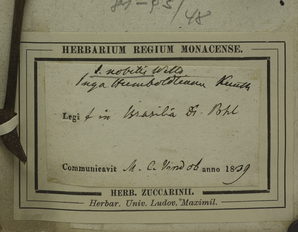 HERBARIUM REGIUM MONACENSE.
I. nobilis Willd
Inga Humboldtiana Kunth
Legi t in Brasilia Dr. Pohl
Communicavit M. C. Vindob anno 1839
HERB. ZUCCARINII.
Herbar. Univ. Ludov. Maximil.